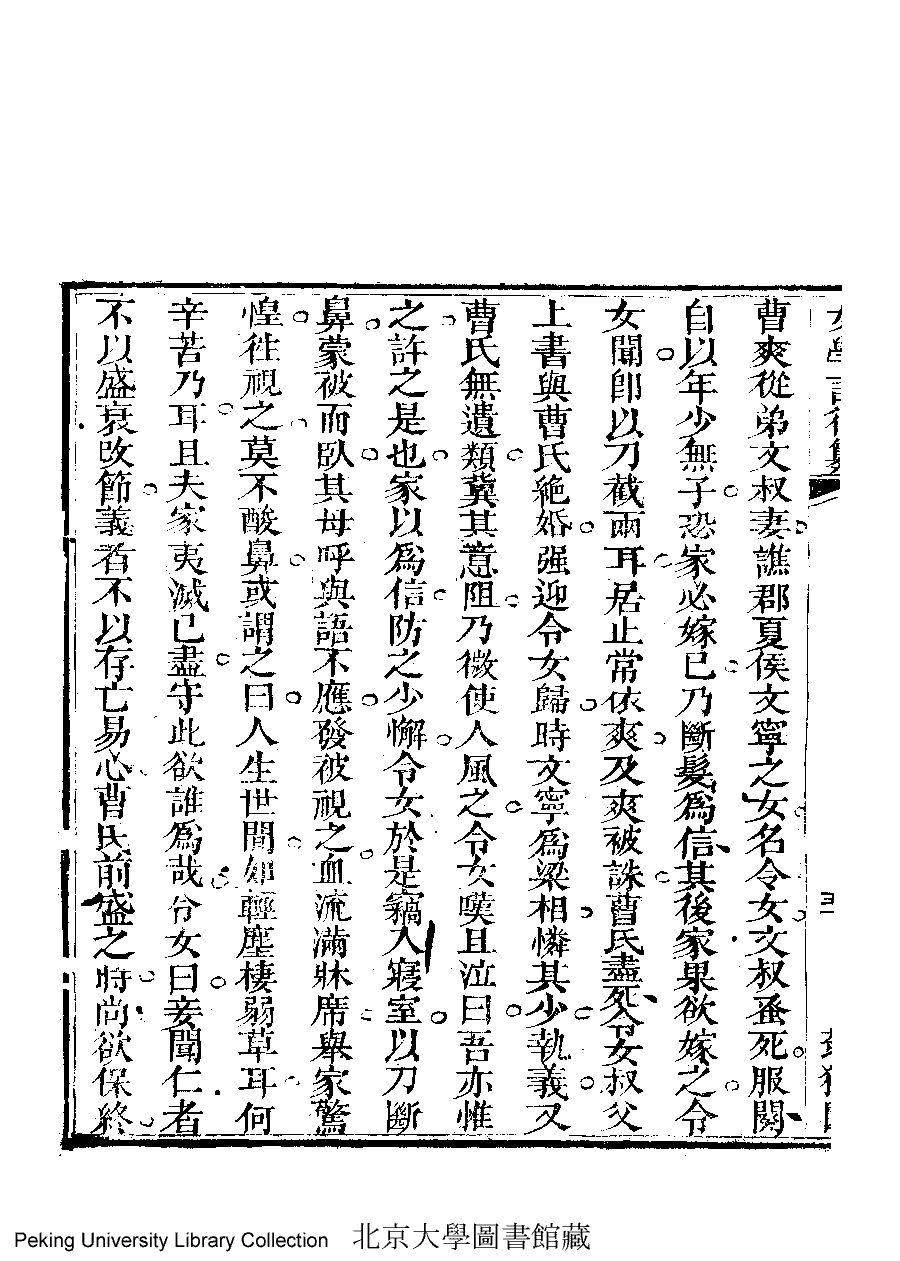 曹爽從弟文叔妻譙郡夏侯文寧之女名令女文叔蚤死服闋
自以年少無子恐家必嫁已乃斷髮爲信其後家果欲嫁之令
女聞卽以刀截兩耳居止常依爽及爽被誅曹氏盡死令女叔父
上書與曹氏絶婚强迎令女歸時文寧爲梁相憐其少執義又
曹氏無遺類冀其意阻乃微使人風之令女嘆且泣曰吾亦惟
之許之是也家以爲信防之少懈令女於是竊入寢室以刀斷
鼻蒙被而臥其母呼與語不應發被視之血流滿牀席舉家驚
惶往視之莫不酸鼻或謂之曰人生世間如輕塵棲弱草耳何
辛苦乃耳且夫家夷滅已盡守此欲誰爲哉令女曰妾聞仁者
不以盛衰改節義者不以存亡易心曹氏前盛之時尚欲保終
Peking University Library Collection 北京大學圖書館藏